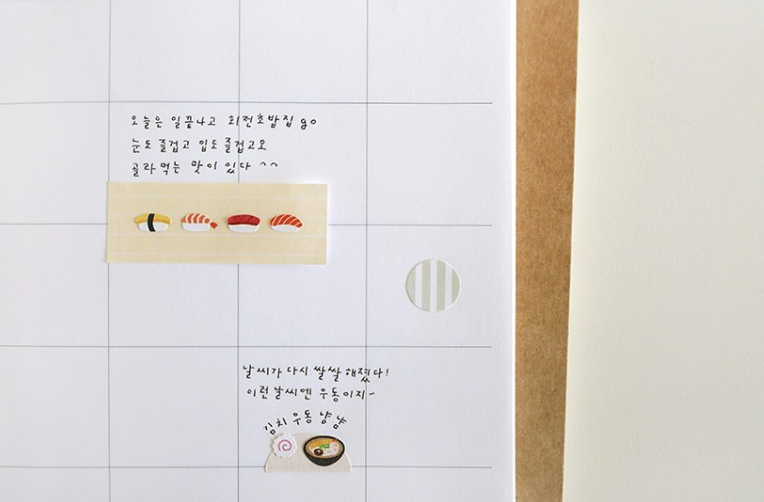 오늘은 일끝나고 회전초밥집 go
눈도 즐겁고 입도 즐겁고요
골라먹는 맛이 있다 ^^
날씨가 다시 쌀쌀해졌다!
이런 날씨엔 우동이지~
김치우동 냠냠